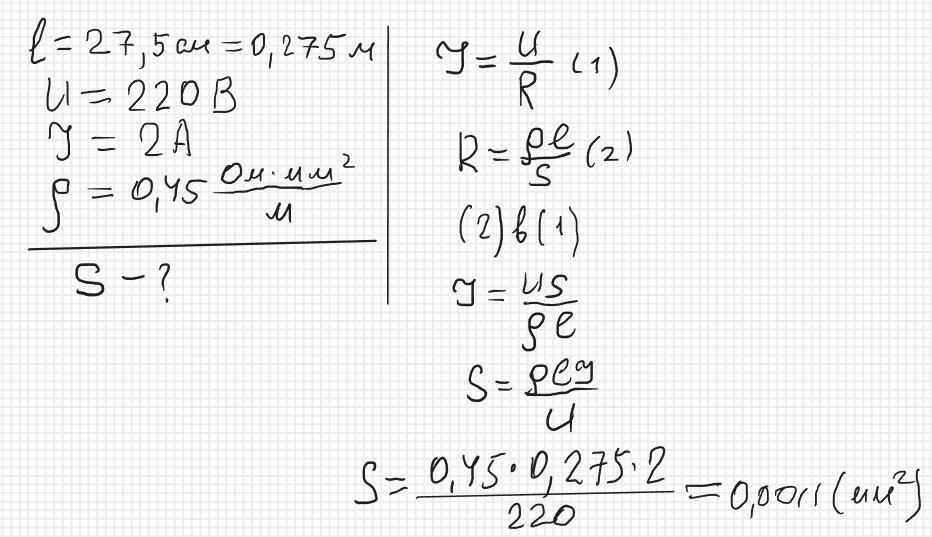 ℓ = 27,5 см = 0,275 м
U = 220 В
I = 2 А
ρ = 0,45 Ом·мм²/м
S - ?
I = U/R (1)
R = ρℓ/S (2)
(2) в (1)
I = US/ρℓ
S = ρℓI/U
S = 0,45·0,275·2/220 = 0,0011 (мм²)